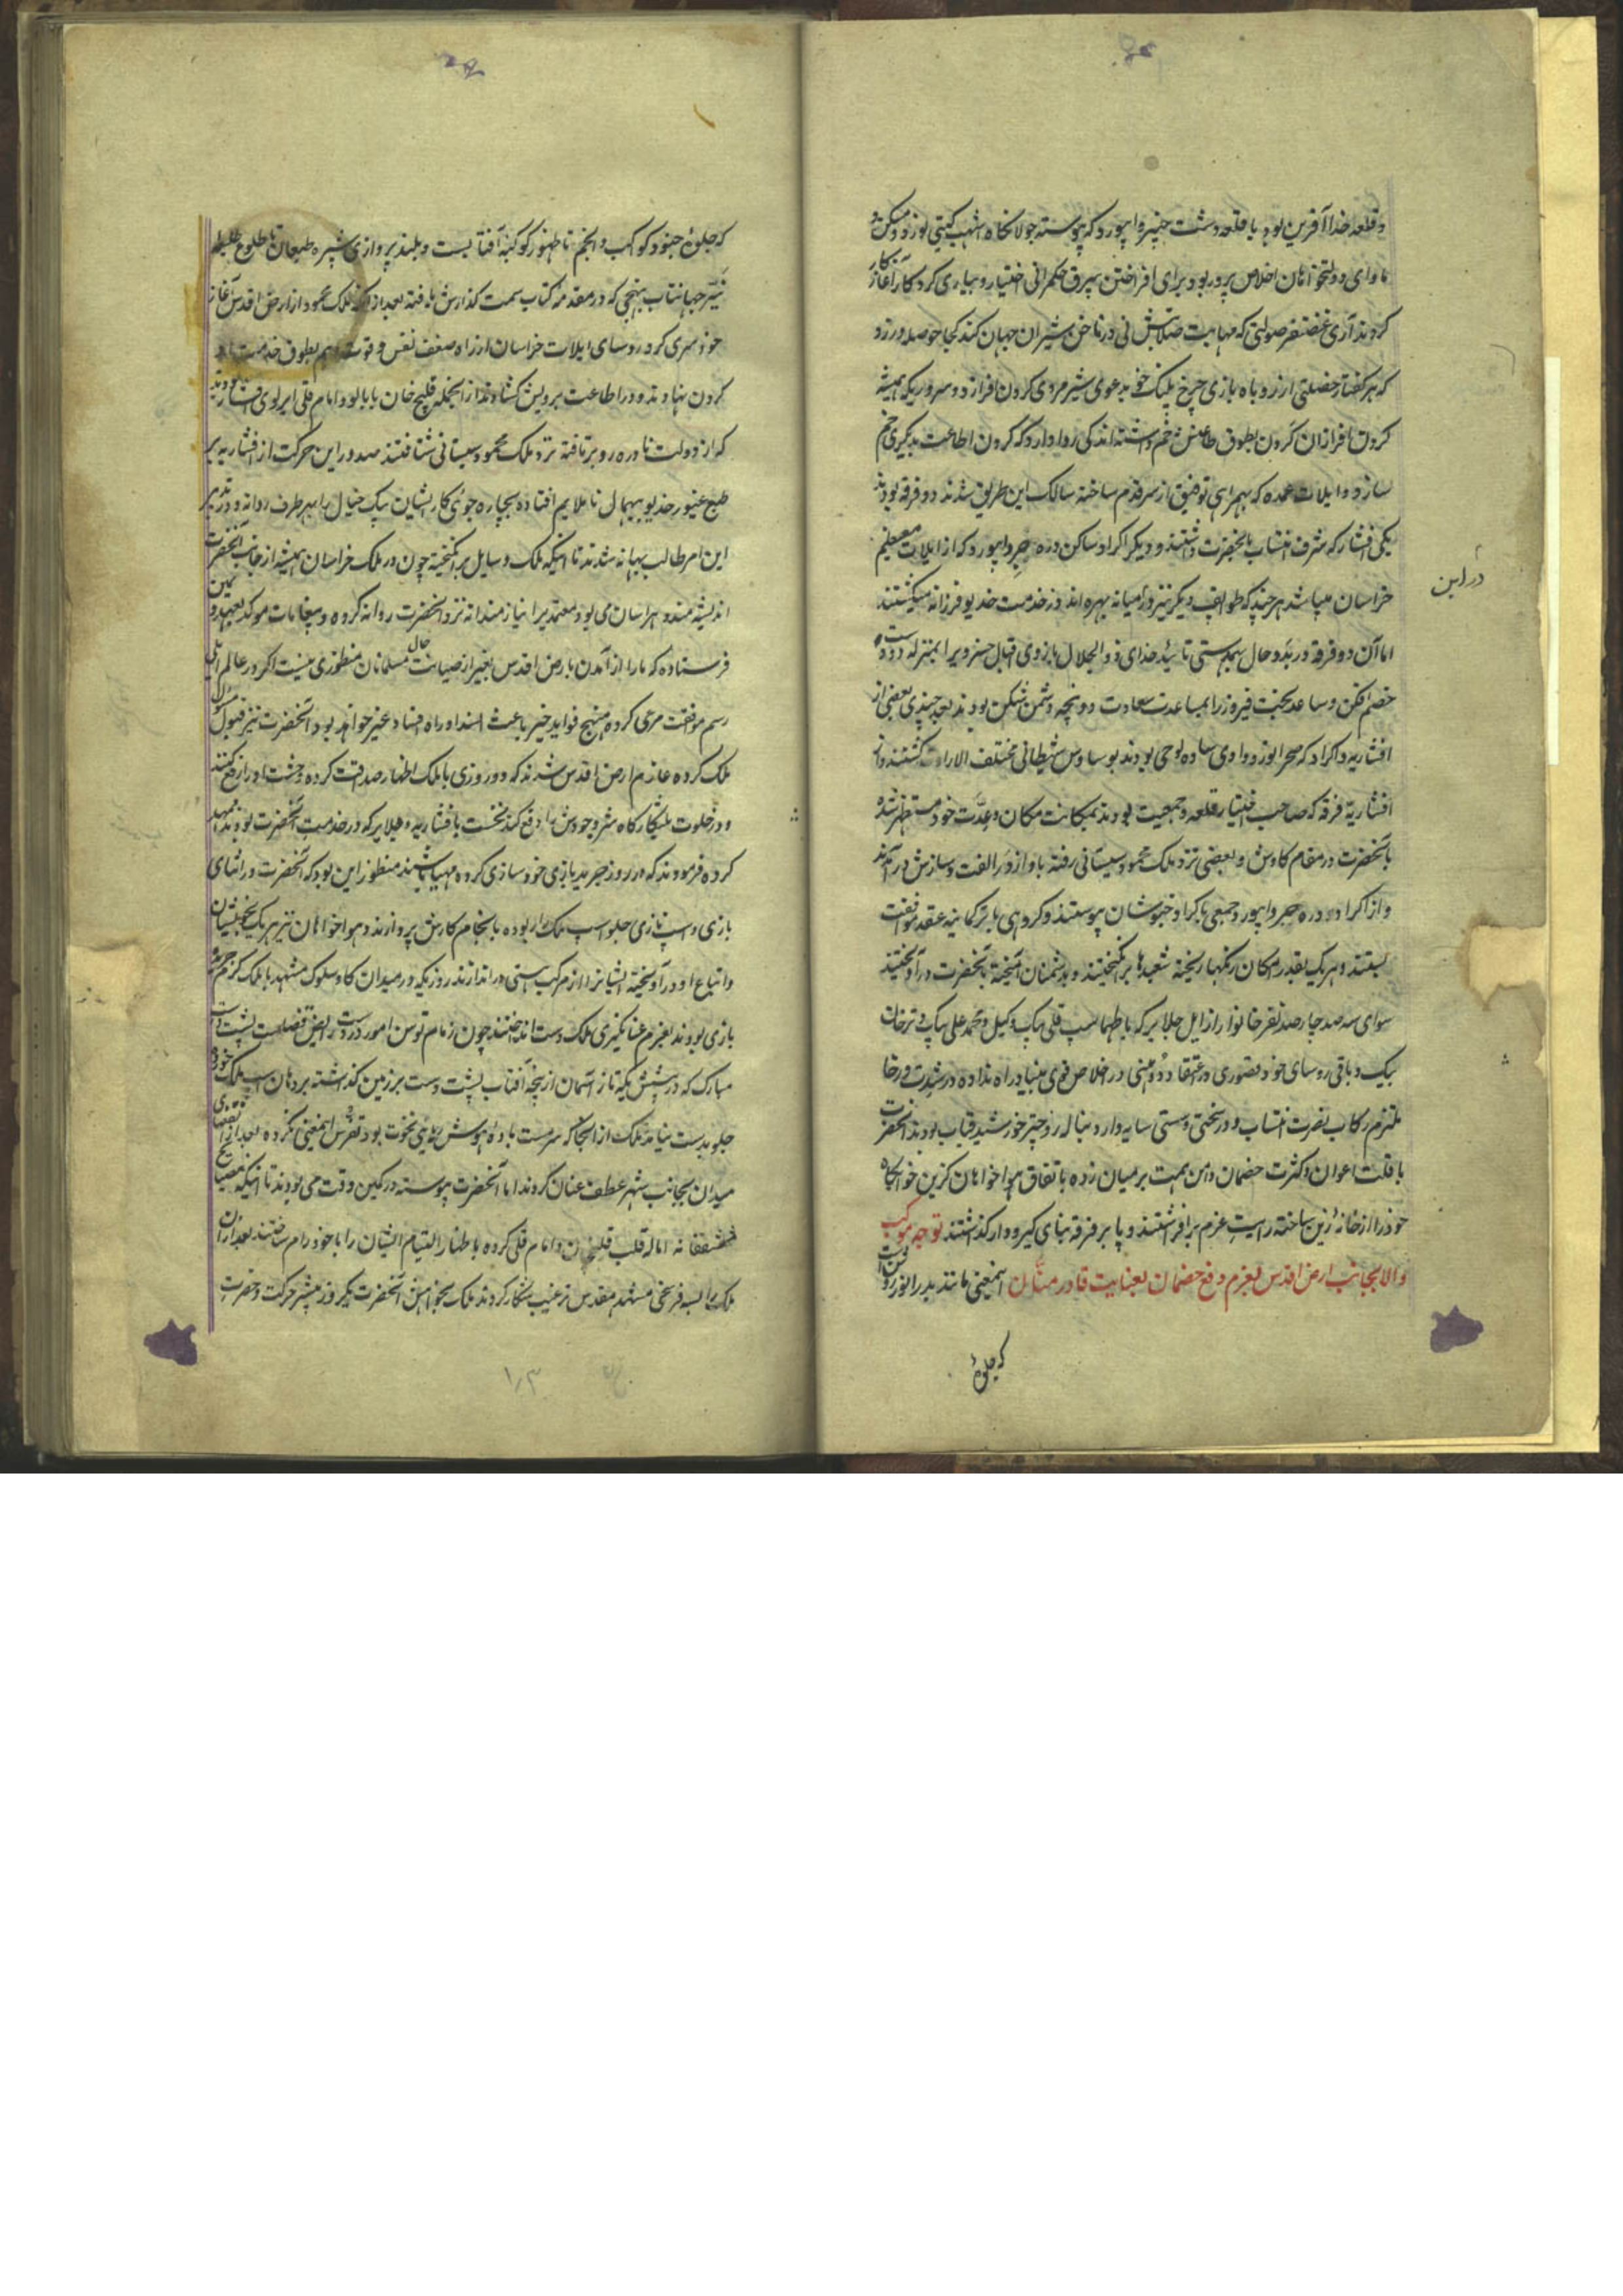 و قلعه خدا آفرین بود با قلعه دشت چنبره ابیورد که پیوسته جولانگاه اشهب گیتی نورد و مسکن و
ماوای دولتخواهان اخلاص پرور بود برای افراختن بیرق حکمرانی اختیار و بیاری کردگار آغاز کار
کردند آری غضنفر صولتی که مهابت صلابتش نی در ناخن شیران جهان کند کجا حوصله ورزد
که هر کفتار خصلتی از روباه بازی چرخ پلنگ خو بدعوی شیر مردی گردن افرازد و سروریکه همیشه
گردن افرازان گردن بطوق طاعتش خم داشته اند کی روا دارد که گردن اطاعت بدیگری خم
سازد و ایلات عمده که بهمراهی توفیق از سر قدم ساخته سالک این طریق شدند دو فرقه بودند
یکی افشار که شرف انتساب بآنحضرت داشتند و دیگر اکراد ساکن دره جز و ابیورد که از ایلات معظم
خراسان میباشد هر چند که طوایف دیگر نیز در آمیانه بهره اندوز خدمت خدیو فرزانه میگشتند
اما آن دو فرقه در بدو حال بهمدستی تائید خدای ذو الجلال بازوی اقبال خسروی را بمنزله دو دست
خصم افکن و ساعد بخت فیروز را بمساعدت سعادت دو پنجه دشمن شکن بودند بعد چندی بعضی از
افشاریه و اکراد که صحرا نورد وادی ساده لوحی بودند بوساوس شیطانی مختلف الاراء گشتند و از
افشاریه فرقه که صاحب اختیار قلعه و جمعیت بودند بمکانت مکان و عدت خود مستظهر شده
با آنحضرت در مقام کاوش و بعضی نزد ملک محمود سیستانی رفته باو از در الفت و سازش در آمدند
و از اکراد دره جز و ابیورد جمعی باکراد خبوشان پیوستند و گروهی با ترکمانیه عقد موافقت
بستند و هر یک بقدر امکان رنگها ریخته شعبدها برانگیختند و بدشمنان آمیخته بآنحضرت در آویختند
سوای سه صد چار صد نفر خانوار از ایل جلایر که با طهماسب قلی بیک وکیل و محمد علی بیک و ترخان
بیک و باقی روسای خود قصوری در اعتقاد و وهنی در اخلاص قوی بنیاد راه نداده در شدت و رخا
ملتزم رکاب نصرت انتساب و در سختی و سستی سایه وار دنباله رو چتر خورشید قباب بودند آنحضرت
با قلت اعوان و کثرت خصمان دامن همت بر میان زده باتفاق هواخواهان گزین خوابگاه
خود را از خانه زین ساخته رایت عزم بر افراشتند و پا بر فرق بنای گیر و دار گذاشتند توجه موکب
والا بجانب ارض اقدس بعزم دفع خصمان بعنایت قادر منّان اینمعنی مانند بدر انور روشن است
که جلوه
در این
که جلوه جنود کوکب و انجم تا ظهور کوکبه آفتابست و بلند پروازی شپره طبعان تا طلوع طلیعه
نیّر جهانتاب بنهجی که در مقدمه کتاب سمت گذارش یافته بعد از آنکه ملک محمود از ارض اقدس آغاز
خودسری کرد روسای ایلات خراسان از راه ضعف نفس و قوت وهم بطوق خدمت او
گردن نهادند و در اطاعت برویش گشادند از آنجمله قلیچ خان بابالو و امام قلی ایرلوی افشار بودند
که از دولت نادره رو برتافته نزد ملک محمود سیستانی شتافتند صدور این حرکت از افشاریه بر
طبع غیور خدیو بیهمال ناملایم افتاده بچاره جوئی کار ایشان پیک خیال را بهر طرف روانه و در تدبیر
این امر طالب بهانه شدند تا اینکه ملک وسایل بر انگیخته چون در ملک خراسان همیشه از جانب آنحضرت
اندیشه مند و هراسان می بود معتمدیرا نیازمندانه نزد آنحضرت روانه کرده و پیغامات موکد بعهد و یمین
فرستاده که ما را از آمدن بارض اقدس بغیر از صیانت حال مسلمانان منظوری نیست اگر در عالم ایلی
رسم موافقت مرعی کرده منتج فواید خیر باعث انسداد راه فساد غیر خواهد بود آنحضرت نیز قبول مسئول
ملک کرده عازم ارض اقدس شدند که دو روزی با ملک اظهار صداقت کرده وحشت او را رفع کنند
و در خلوت بیشکارگاه شر وجودش را دفع کنند نخست با افشاریه و جلایر که در خدمت آنحضرت بودند تمهید
کرده فرمودند که در روز جریدبازی خودسازی کرده مهیا باشند منظور این بود که آنحضرت در اثنای
بازی و اسپ تازی جلو اسپ ملک را ربوده بانجام کارش پردازند و هواخواهان نیز هر یک بخویشان
و اتباع او در آویخته ایشانرا از مرکب هستی در اندازند روزیکه در میدان کاوسلوک مشهد با ملک گرم جرید
بازی بودند بعزم عنانگیری ملک دست انداختند چون زمام توسن امور در دست رایض قضاست پشت دست
مبارک که در پیشش یکه تاز آسمان از پنجه آفتاب پشت دست بر زمین گذاشته بر دهان اسپ ملک خورد
جلو بدست نیامد ملک از آنجا که سرمست باده بیهوشی ربای نخوت بود تفرس اینمعنی نکرده بعد از انقضای
میدان بجانب شهر عطف عنان کردند اما آنحضرت پیوسته در کمین وقت می بودند تا اینکه بنصایح
مشفقانه اماله قلب قلیچ خان و امام قلی کرده باظهار التیام ایشان را با خود رام ساختند بعد از آن
ملک را بسه فرسخی مشهد مقدس ترغیب شکار کردند ملک بخواهش آنحضرت یکروز پیشتر حرکت و حضرت